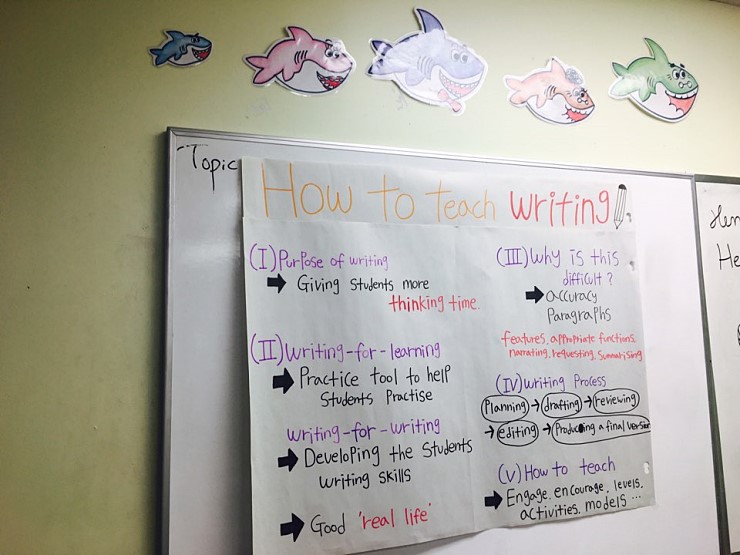 Topic
How to teach writing
(I) Purpose of writing
➡ Giving students more
thinking time.
(II) writing-for-learning
➡ Practice tool to help
students Practise
writing-for-writing
➡ Developing the students
writing skills
➡ Good 'real life'
(III) Why is this
difficult?
➡ accuracy
Paragraphs
features, appropriate functions
narrating, requesting, summarising
(IV) Writing Process
Planning → drafting → reviewing
→ editing → Producing a final version
(V) How to teach
➡ Engage, encourage, levels,
activities, models ...
He